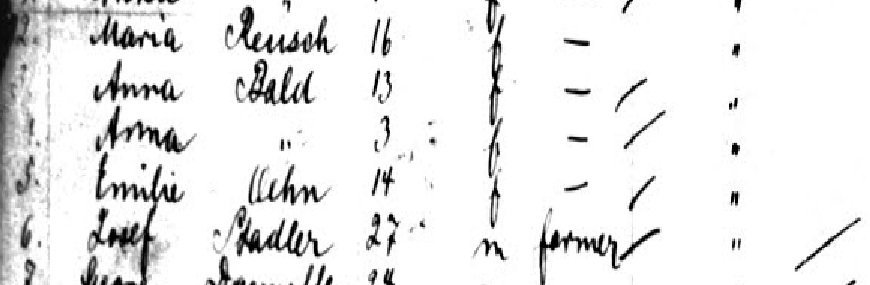 2. Maria Reusch 16 f — "
Anna Bald 13 f — / "
Anna " 3 f — / "
5. Emilie 14 f — / "
6. Josef Stadler 27 m farmer / " /